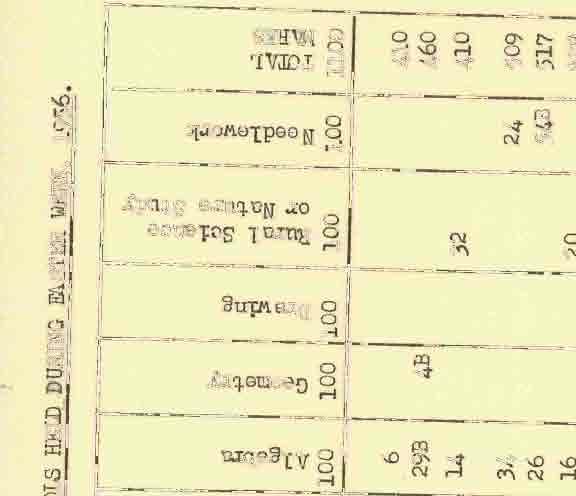 HELD DURING EASTER WEEK, 1936.
Algebra
Geometry
Drawing
Rural Science
or Nature Study
Needlework
TOTAL
MARKS
100
100
100
100
100
6
410
29B
4B
460
14
32
410
34
24
509
26
54B
517
16
20